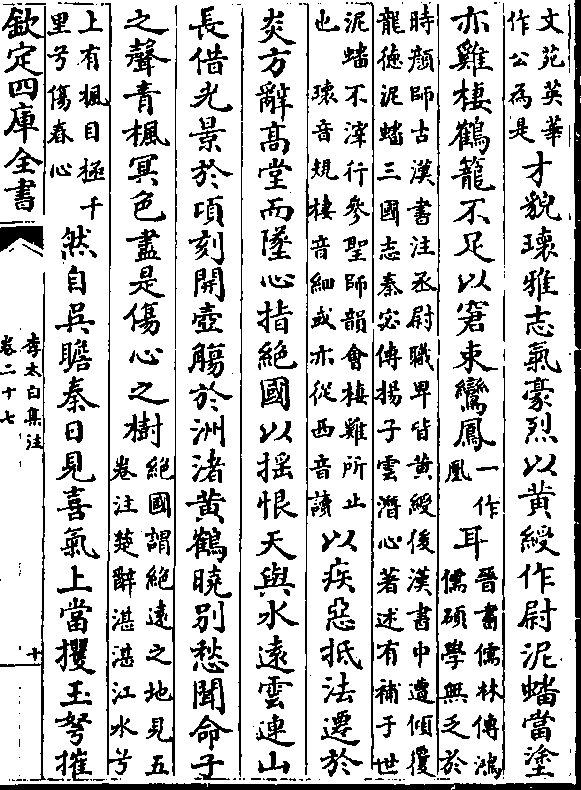 文苑英華
作公為是
才貌瓌雅志氣豪烈以黃綬作尉泥蟠當塗
亦雞棲鶴籠不足以窘束鸞鳳
一作
凰
耳
晉書儒林傳鴻
儒碩學無乏於
時顏師古漢書注丞尉職卑皆黃綬後漢書中遭傾覆
龍德泥蟠三國志秦宓傳揚子雲潛心著述有補于世
泥蟠不滓行參聖師韻會棲雞所止
也　瓌音規棲音細或亦從西音讀
以疾惡抵法遷於
炎方辭高堂而墜心指絶國以揺恨天與水遠雲連山
長借光景於頃刻開壺觴於洲渚黃鶴曉別愁聞命子
之聲青楓冥色盡是傷心之樹
絶國謂絶遠之地見五
卷注楚辭湛湛江水兮
上有楓目極千
里兮傷春心
然自吳瞻秦日見喜氣上當攫玉弩摧
欽定四庫全書
李太白集注
卷二十七
十